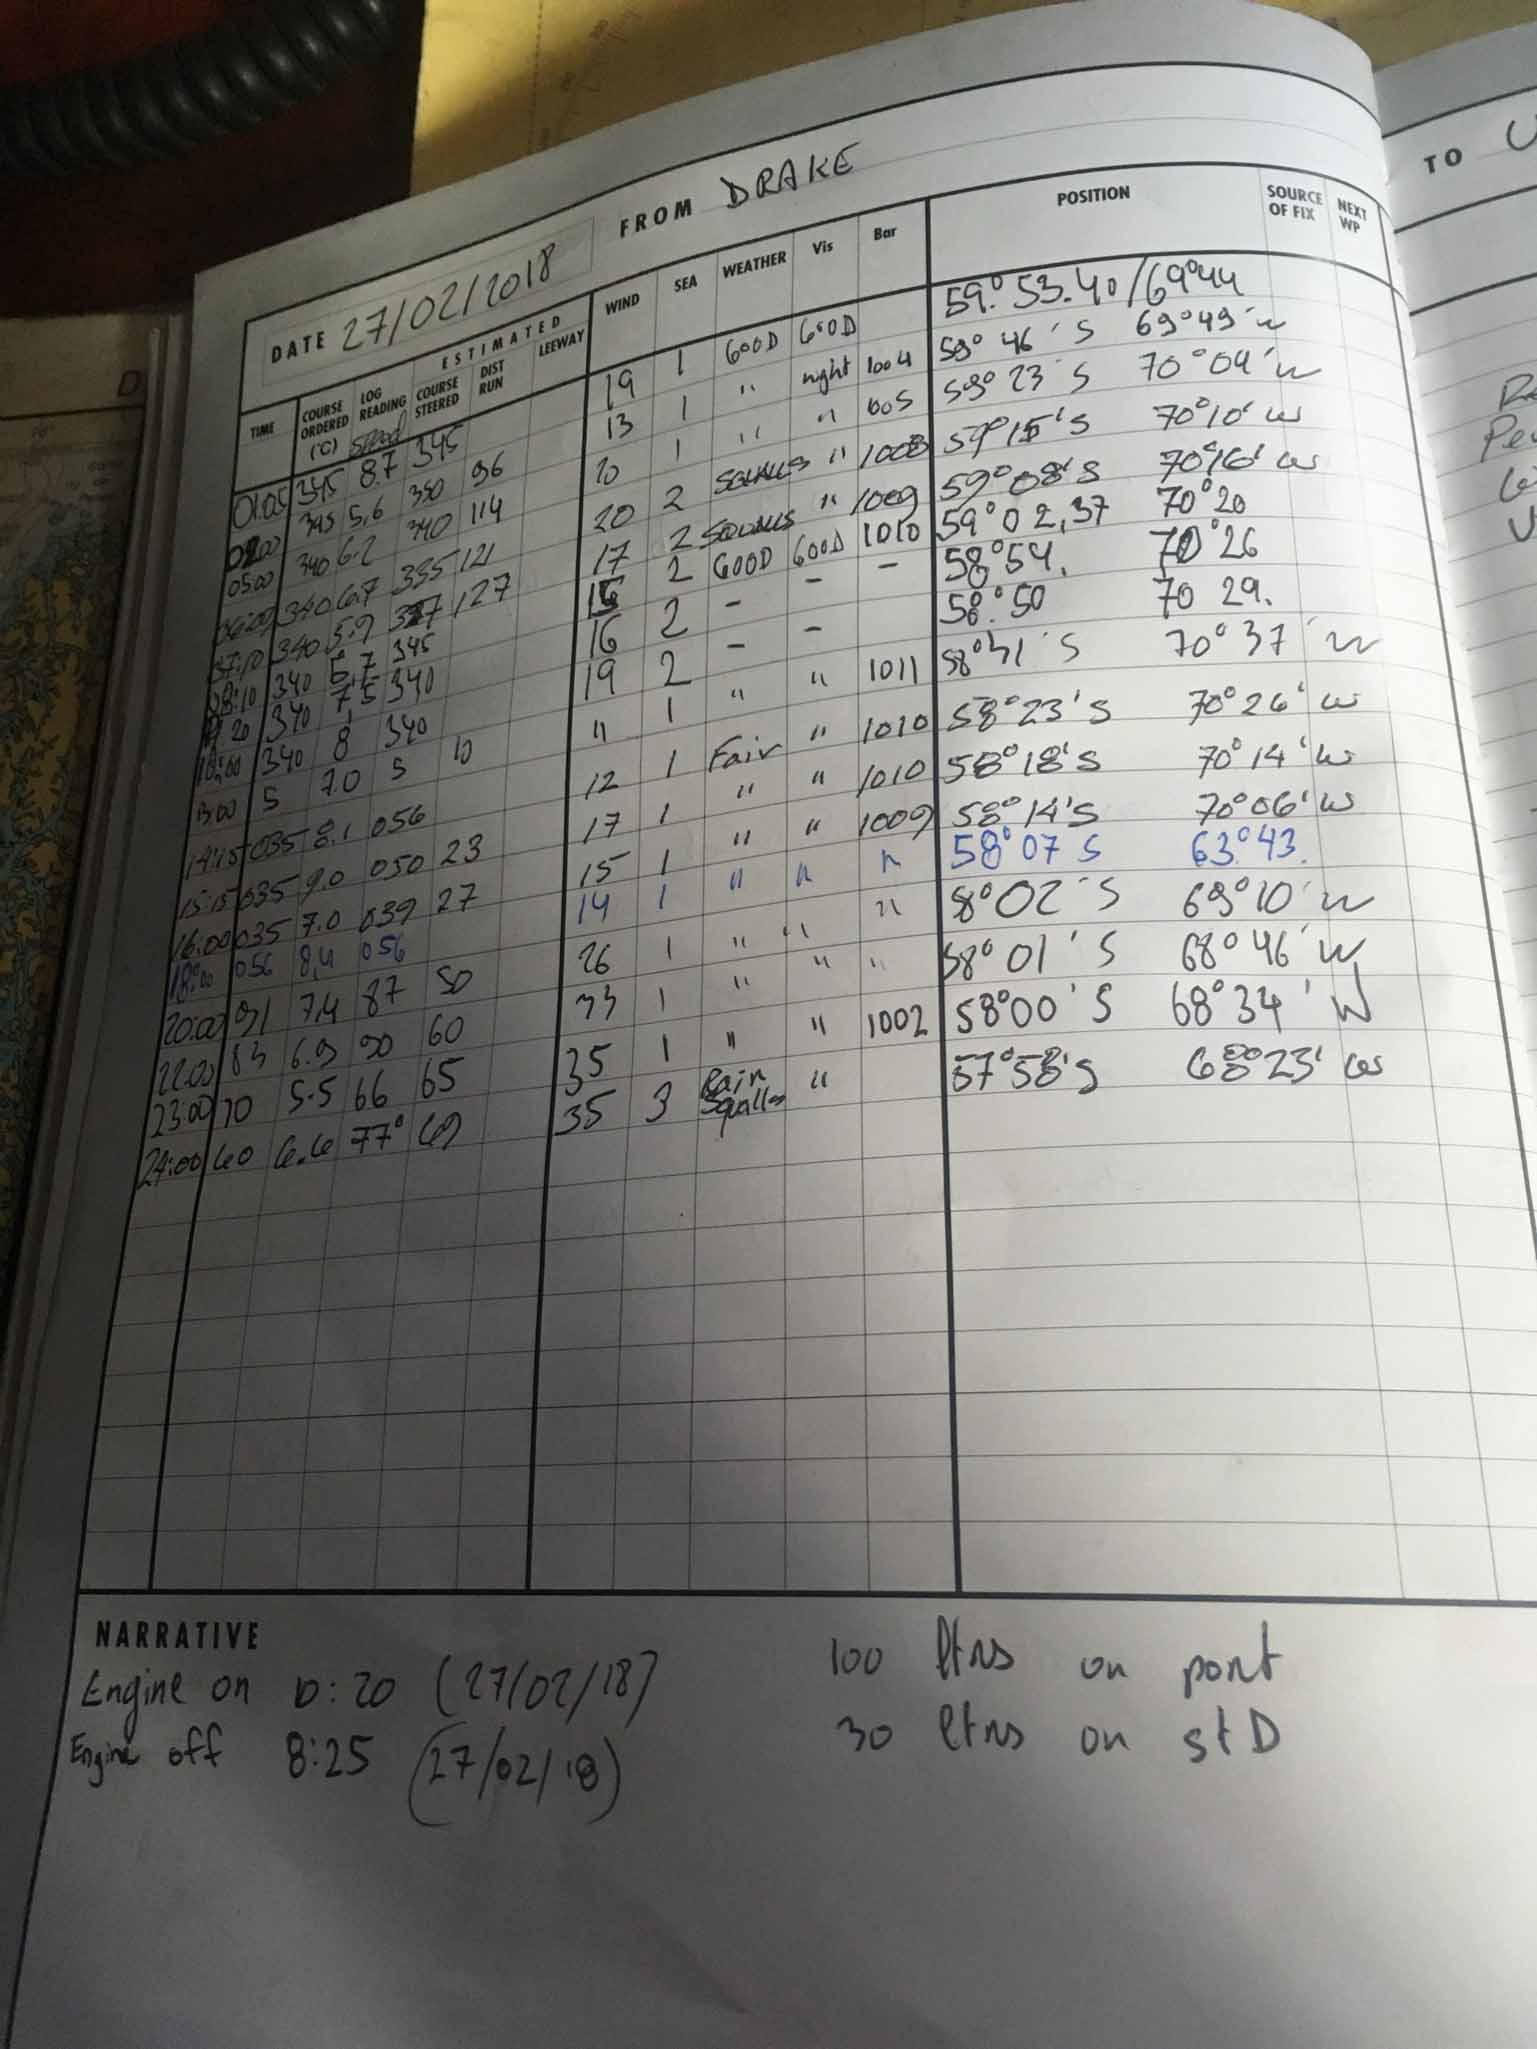 FROM DRAKE
TO
DATE 27/02/2018
ESTIMATED
TIME COURSE ORDERED (°C) LOG READING Speed COURSE STEERED DIST RUN LEEWAY WIND SEA WEATHER Vis Bar POSITION SOURCE OF FIX NEXT WP
01.05 345 8.7 345 19 1 GOOD GOOD 59° 53.40/69°44
345 5,6 350 96 13 1 " night 1004 59° 46'S 69°49'W
05.00 340 6.2 340 114 10 1 " " 1005 59° 23'S 70°04'W
06:00 340 6.7 335 121 20 2 SQUALLS " 1008 59°15'S 70°10'W
07:10 340 5.9 127 17 2 SQUALLS " 1009 59°08'S 70°16'W
08:10 340 5,7 345 2 GOOD GOOD 1010 59°02,37 70°20
340 7,5 340 16 2 - - - 58°54. 70°26
340 8 340 19 2 - - 58°.50 70 29.
13:00 5 7.0 5 10 " 1 " " 1011 58°31'S 70°37'W
14:15 035 8.1 056 12 1 Fair " 1010 58°23'S 70°26'W
15:15 035 9.0 050 23 17 1 " " 1010 58°18'S 70°14'W
16.00 035 7.0 039 27 15 1 " " 1009 58°14'S 70°06'W
18:00 056 8,4 056 14 1 " " " 58°07 S 63°43.
20:00 91 7,4 87 50 26 1 " " " 8°02'S 69°10'W
22.00 83 6.9 90 60 33 1 " " " 58°01'S 68°46'W
23:00 70 5.5 66 65 35 1 " " 1002 58°00'S 68°34'W
24:00 60 6.6 77° 69 35 3 Rain Squalls " 57°58'S 68°23'W
NARRATIVE
Engine on 0:20 (27/02/18) 100 ltrs on port
Engine off 8:25 (27/02/18) 30 ltrs on stD